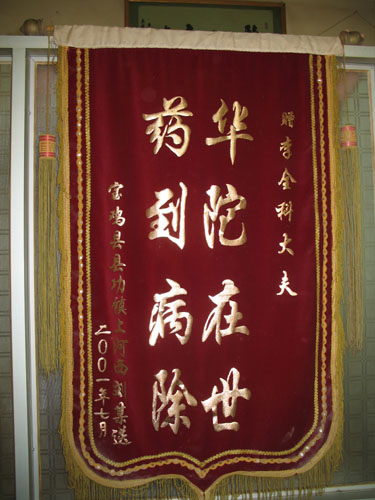 赠李全科大夫
华陀在世
药到病除
宝鸡县县功镇上河西刘某送
二〇〇一年七月